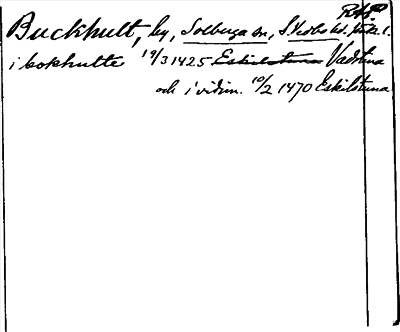 RApp
Buckhult, by, Solberga sn, S. Vedbo hd, Jönk. l.
i bokhulte 19/3 1425 Eskilstuna Vadstena
och i vidim. 10/2 1470 Eskilstuna